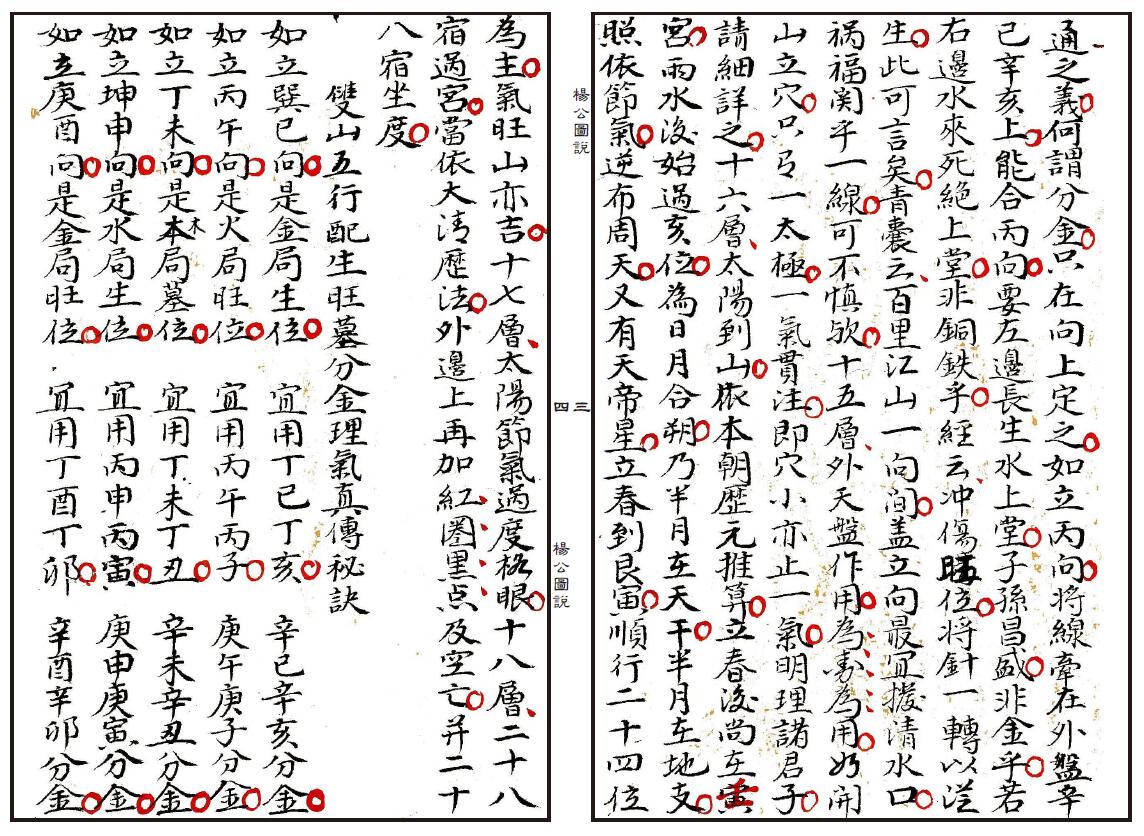 通之義何謂分金只在向上定之如立丙向將線牽在外盤辛
已辛亥上能合丙向要左邊長生水上堂子孫昌盛非金乎若
右邊水來死絕上堂非銅鉄乎経云冲傷位將針一轉以
生此可言矣青囊云百里江山一向间盖立向最宜撥清水口
祸福関乎一線可不慎欤十五層外天盤作用為為用妙開
山立穴只一太極一氣貫注即穴小亦止一氣明理諸君子
請細詳之十六層太陽到山依本朝歷元推算立春後尚在
宮雨水後始過亥位為日月合朔乃半月在天干半月在地支
照依節氣逆布周天又有天帝星立春到艮寅順行二十四位
楊公圖說
三
四
楊公圖說
為主氣旺山亦吉十七層太陽節氣過度格眼十八層二十八
宿過宮當依大清歷法外邊上再加紅圏黑点及空亡并二十
八宿坐度
雙山五行配生旺墓分金理氣真傳秘訣
如立巽巳向是金局生位 宜用丁巳丁亥 辛巳辛亥分金
如立丙午向是火局旺位 宜用丙午丙子 庚午庚子分金
如立丁未向是木局墓位 宜用丁未丁丑 辛未辛丑分金
如立坤申向是水局生位 宜用丙申丙寅 庚申庚寅分金
如立庚酉向是金局旺位 宜用丁酉丁卯 辛酉辛卯分金